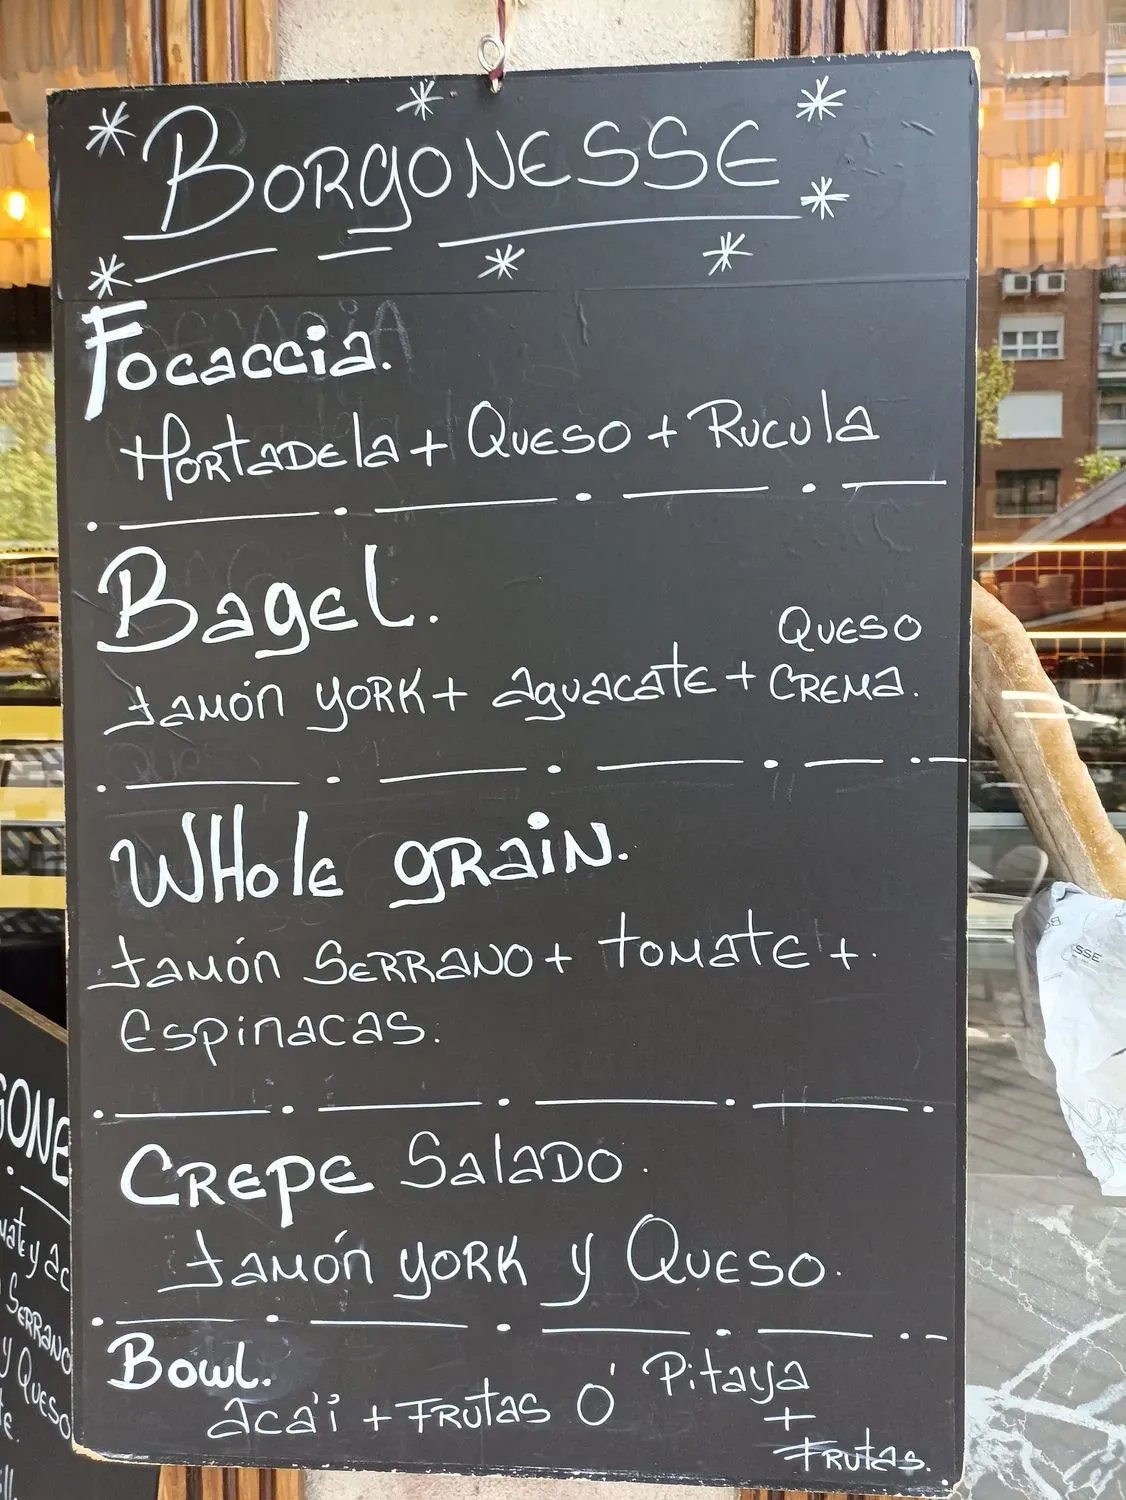 BORGONESSE
Focaccia.
MORTADELA + QUESO + RUCULA
Bagel.
JAMÓN YORK + AGUACATE + QUESO CREMA.
WHOLE GRAIN.
JAMÓN SERRANO + TOMATE +.
ESPINACAS.
CREPE SALADO.
JAMÓN YORK Y QUESO.
BOWL.
acaí + FRUTAS Ó Pitaya
+
FRUTAS.
GONE
y ac
SERRANO
y QUESO
SSE